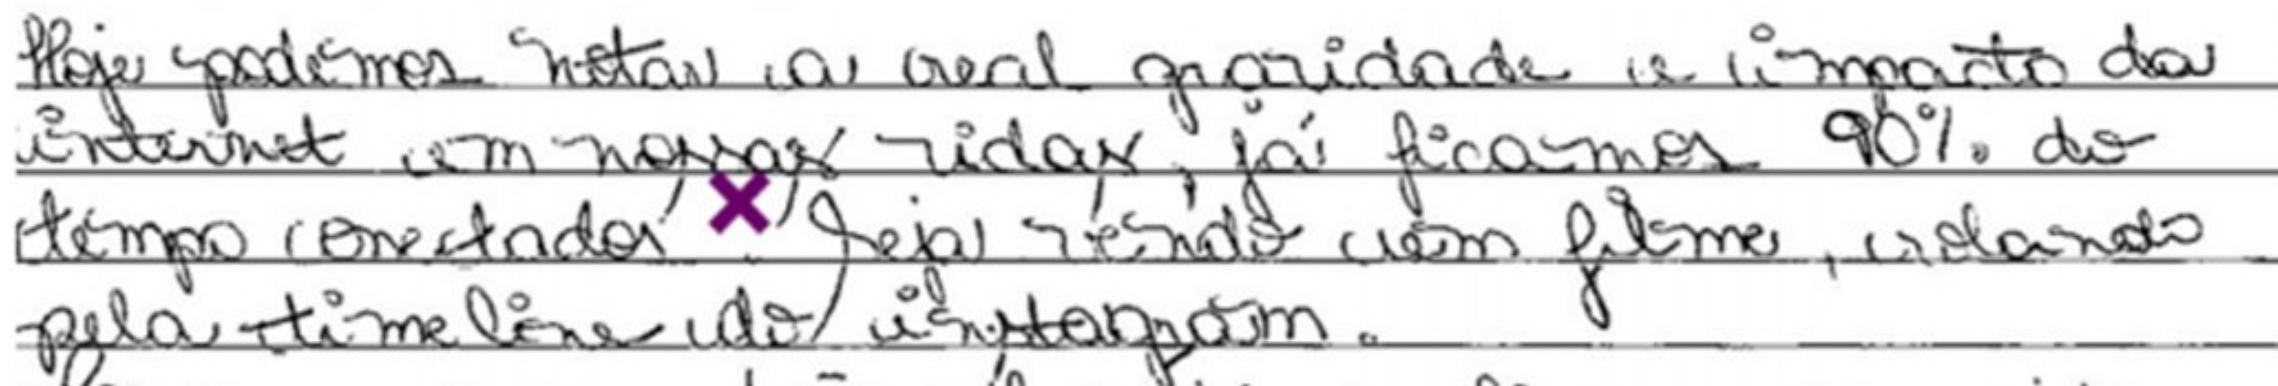 Hoje podemos notar a real gravidade e impacto da
internet em nossas vidas, já ficamos 90% do
tempo conectados. Seja vendo um filme, rolando
pela timeline do instagram.